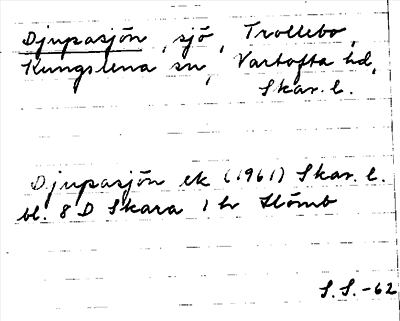 Djupasjön, sjö, Trollebo,
Kungslena sn, Vartofta hd,
Skar. l.
Djupasjön ek (1961) Skar. l.
bl. 8 D Skara 1 hr
S.S.-62